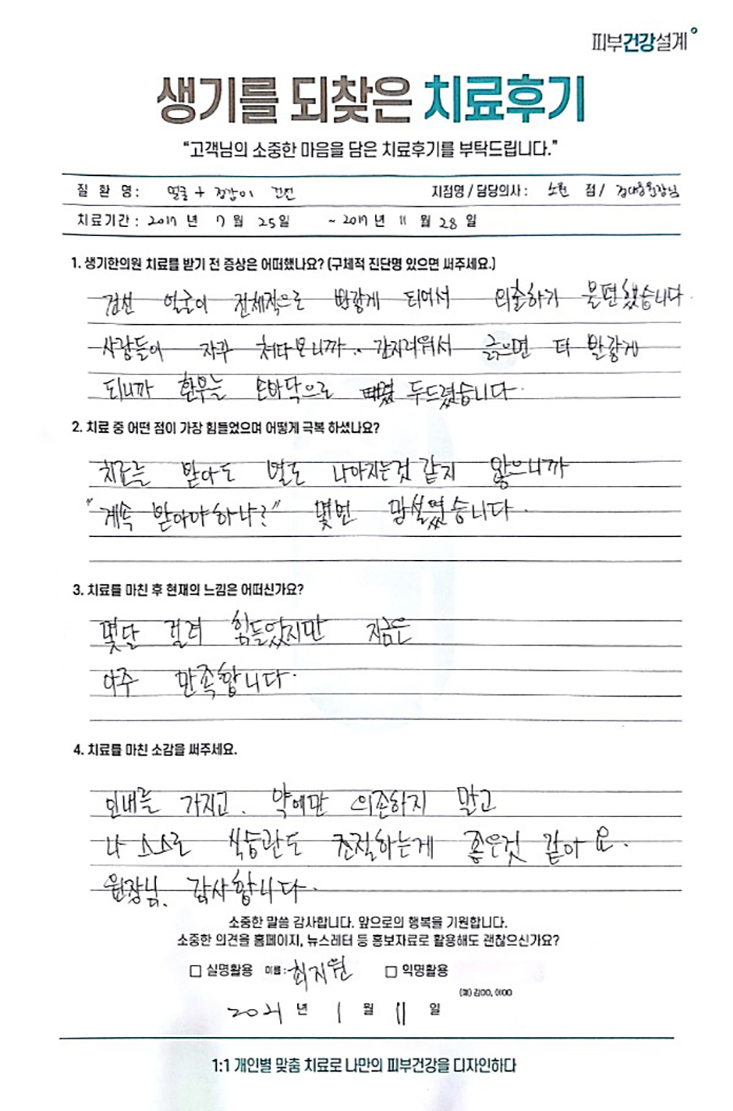 피부건강설계
생기를 되찾은 치료후기
"고객님의 소중한 마음을 담은 치료후기를 부탁드립니다."
질 환 명 : 얼굴 + 정강이 건선 지점명 / 담당의사 : 노원 점 / 원장님
치료기간 : 2017 년 7 월 25 일 ~ 2017 년 11 월 28 일
1. 생기한의원 치료를 받기 전 증상은 어떠했나요? (구체적 진단명 있으면 써주세요.)
건선 얼굴이 전체적으로 빨갛게 되어서 외출하기 불편했습니다
사람들이 자꾸 쳐다보니까.. 간지러워서 긁으면 더 빨갛게
되니까 환부를 손바닥으로 두드렸습니다.
2. 치료 중 어떤 점이 가장 힘들었으며 어떻게 극복 하셨나요?
치료를 받아도 별로 나아지는것 같지 않으니까
"계속 받아야하나?" 몇번 망설였습니다.
3. 치료를 마친 후 현재의 느낌은 어떠신가요?
몇달 걸려 힘들었지만 지금은
아주 만족합니다.
4. 치료를 마친 소감을 써주세요.
인내를 가지고. 약에만 의존하지 말고
나 스스로 식습관도 조절하는게 좋은것 같아요.
원장님, 감사합니다.
소중한 말씀 감사합니다. 앞으로의 행복을 기원합니다.
소중한 의견을 홈페이지, 뉴스레터 등 홍보자료로 활용해도 괜찮으신가요?
□ 실명활용 이름 : 최지원 □ 익명활용
(예) 김OO, 이OO
2021 년 1 월 11 일
1:1 개인별 맞춤 치료로 나만의 피부건강을 디자인하다